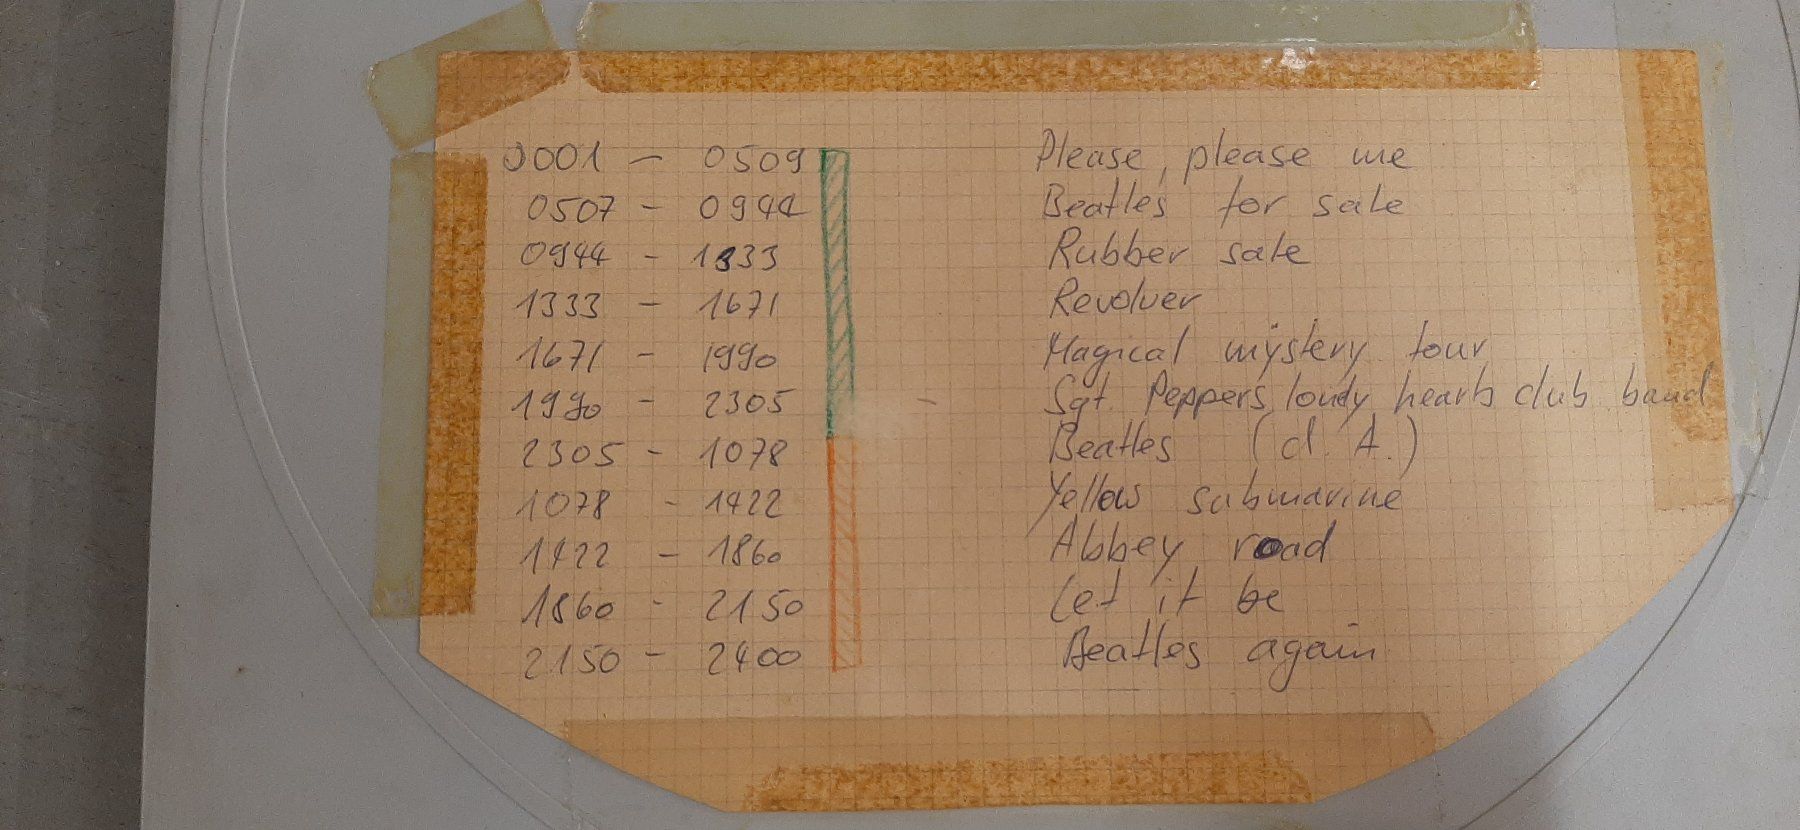 0001 - 0509 Please, please me
0507 - 0944 Beatles for sale
0944 - 1333 Rubber sale
1333 - 1671 Revolver
1671 - 1990 Magical mystery tour
1990 - 2305 Sgt. Peppers lonely hearts club band
2305 - 1078 Beatles (d. A.)
1078 - 1422 Yellow submarine
1422 - 1860 Abbey road
1860 - 2150 Let it be
2150 - 2400 Beatles again